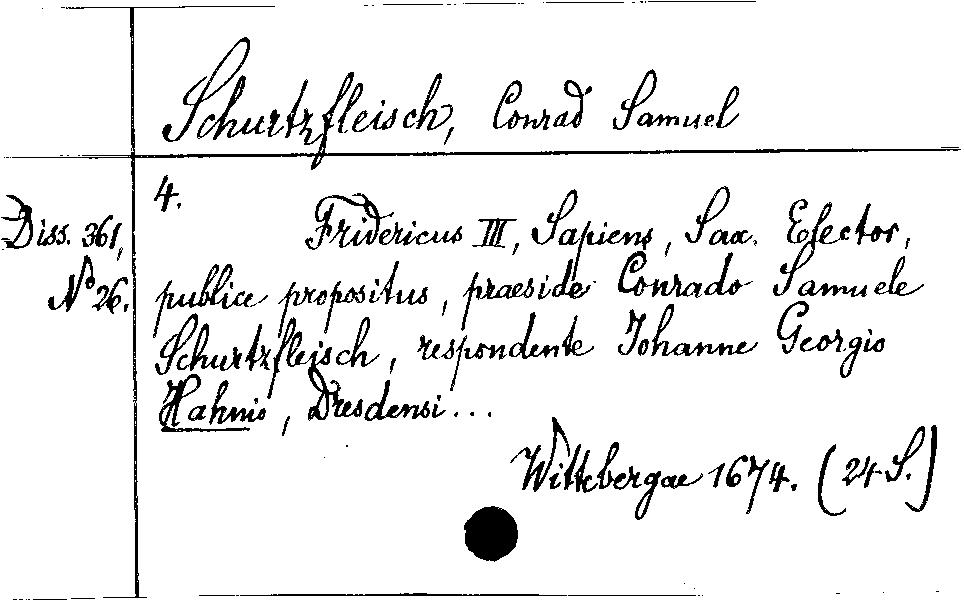 Schurtzfleisch, Conrad Samuel
Diss. 361,
No 26.
4.
Fridericus III, Sapiens, Sax. Elector,
publice propositus, praeside Conrado Samuele
Schurtzfleisch, respondente Johanne Georgio
Hahnio, Dresdensi ...
Wittebergae 1674. (24 S.)